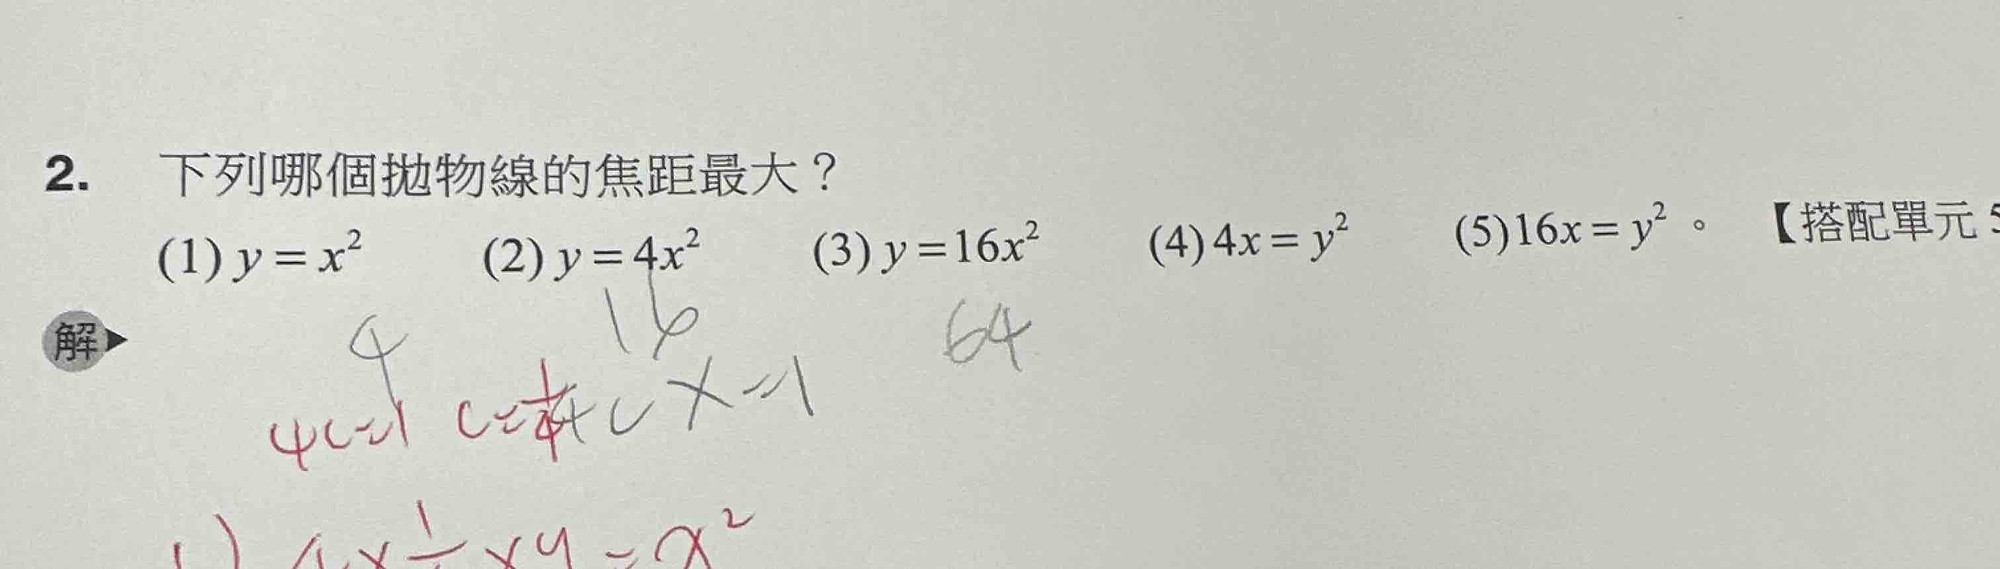 2. 下列哪個拋物線的焦距最大？
(1) y = x² (2) y = 4x² (3) y = 16x² (4) 4x = y² (5) 16x = y² 。 【搭配單元 5
解
4 16 64
4c=1 c=1/4 4c x=1
1) 4x1/4xy=x²